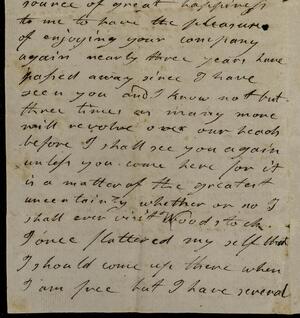 source of great happiness
to me to have the pleasure
of enjoying your company
again nearly three years have
passed away since I have
seen you and I know not but
three times as many more
will revolve over our heads
before I shall see you again
unless you come here for it
is a matter of the greatest
uncertainty whether or no I
shall ever visit Woodstock.
I once flattered my self that
I should come up there when
I am free but I have several